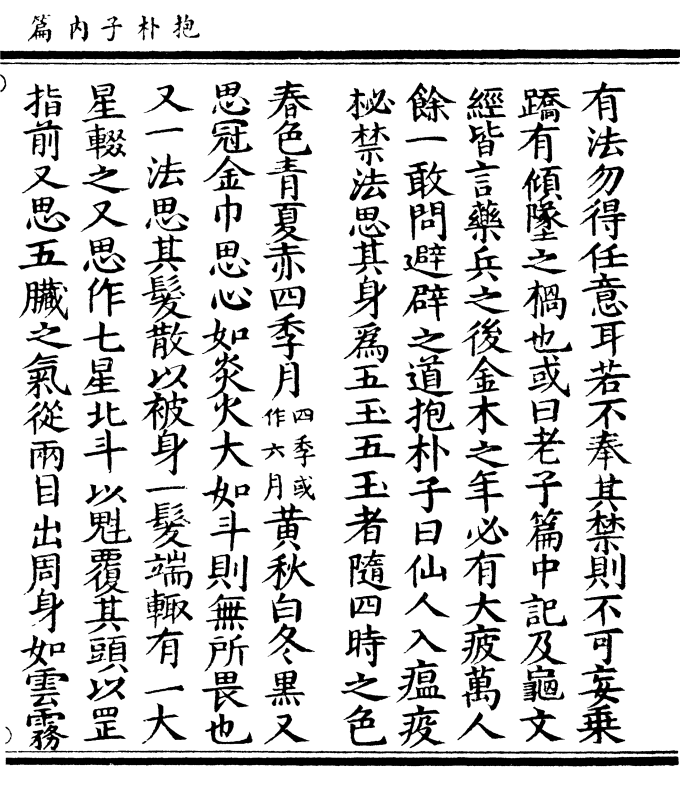 抱朴子內篇
有法勿得任意耳若不奉其禁則不可妄乗
蹻有傾墜之禍也或曰老子篇中記及龜文
經皆言藥兵之後金木之年必有大疫萬人
餘一敢問避辟之道抱朴子曰仙人入瘟疫
柲禁法思其身爲五玉五玉者隨四時之色
春色青夏赤四季月四季或作六月黃秋白冬黒又
思冠金巾思心如炎火大如斗則無所畏也
又一法思其髮散以被身一髮端輙有一大
星輟之又思作七星北斗以魁覆其頭以罡
指前又思五臟之氣從兩目出周身如雲霧